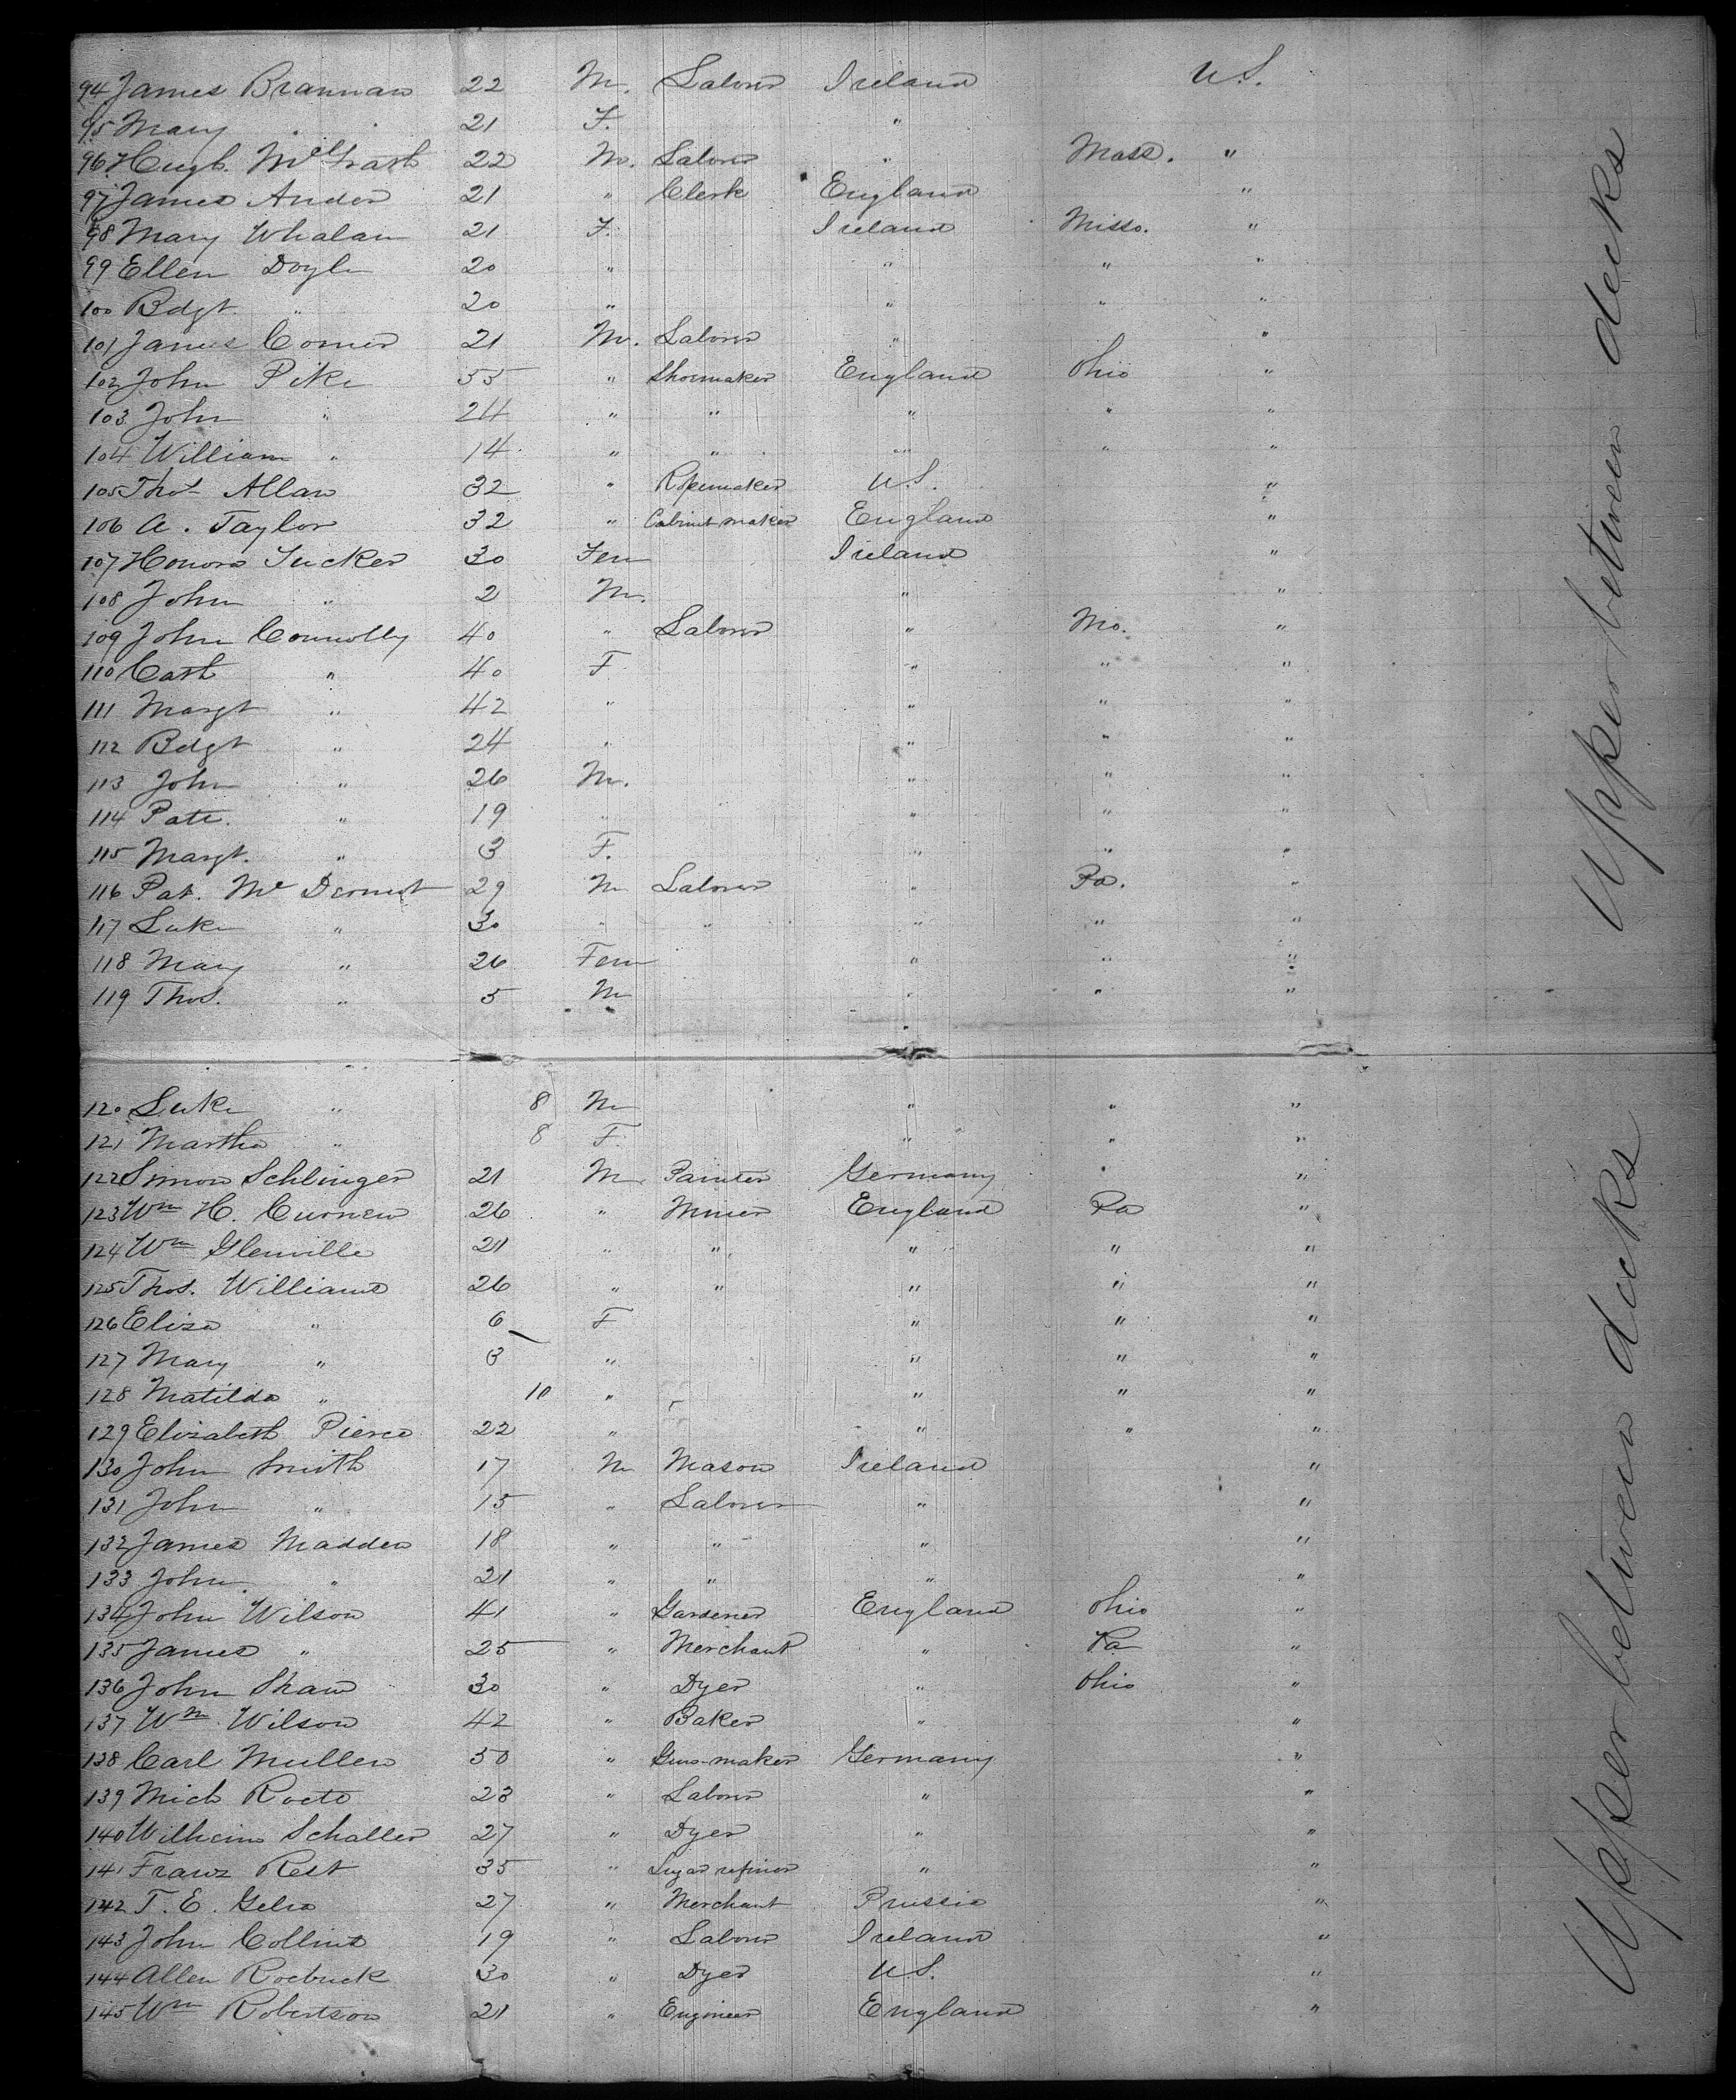 94 James Brannan 22 M. Laborer Ireland U.S.
95 Mary " 21 F. "
96 Hugh McGrath 22 M. Laborer " Mass. "
97 James Ander 21 " Clerk England "
98 Mary Whalan 21 F. Ireland Misso. "
99 Ellen Doyle 20 " " " "
100 Bdgt " 20 " " " "
101 James Comer 21 M. Laborer " "
102 John Pike 55 " Shoemaker England Ohio "
103 John " 24 " " " " "
104 William " 14 " " " " "
105 Thos Allan 32 " Ropemaker U.S. "
106 A. Taylor 32 " Cabinet maker England "
107 Honora Tucker 30 Fem Ireland "
108 John " 2 M. " "
109 John Connolly 40 " Laborer " Mo. "
110 Cath " 40 F " " "
111 Margt " 42 " " " "
112 Bdgt " 24 " " " "
113 John " 26 M. " " "
114 Patk. " 19 " " " "
115 Margt. " 3 F. " " "
116 Pat. Mc Dermot 29 M Laborer " Pa. "
117 Luke " 30 " " " " "
118 Mary " 26 Fem " " "
119 Thos. " 5 M " " "
120 Luke " 8 M " " "
121 Martha " 8 F. " " "
122 Simon Schlinger 21 M Painter Germany " "
123 Wm H. Curnew 26 " Miner England Pa "
124 Wm Glenville 21 " " " " "
125 Thos. Williams 26 " " " " "
126 Eliza " 6 F " " "
127 Mary " 3 " " " "
128 Matilda " 10 " " " "
129 Elizabeth Pierce 22 " " " "
130 John Smith 17 M Mason Ireland "
131 John " 15 " Laborer " "
132 James Madden 18 " " " "
133 John " 21 " " " "
134 John Wilson 41 " Gardener England Ohio "
135 James " 25 " Merchant " Pa "
136 John Shaw 30 " Dyer " Ohio "
137 Wm Wilson 42 " Baker " "
138 Carl Muller 50 " Gun-maker Germany "
139 Mich 23 " Laborer " "
140 Wilheim Schaller 27 " Dyer " "
141 Franz Rest 35 " Sugar refiner " "
142 T. E. 27 " Merchant Prussia "
143 John Collins 19 " Laborer Ireland "
144 Allen Roebuck 30 " Dyer U.S. "
145 Wm Robertson 21 " Engineer England "
Upper between decks
Upper between decks